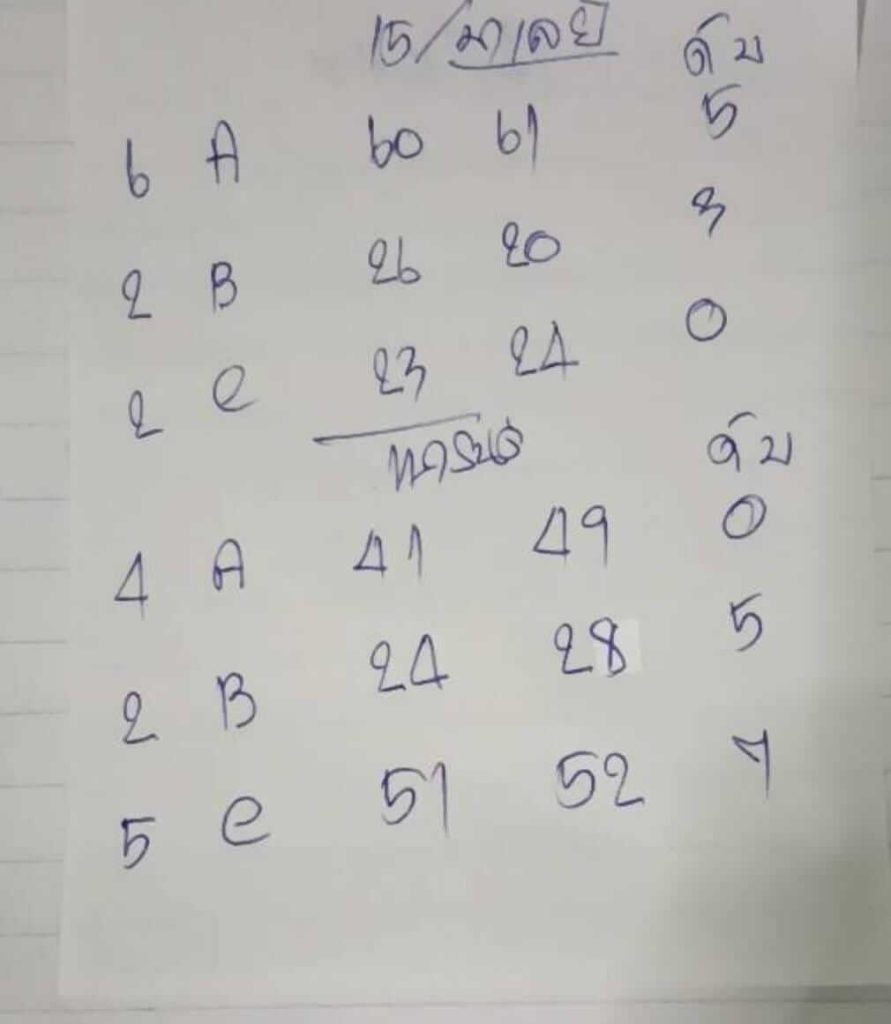 15/มาเลย์ ดับ
6 A 60 61 5
2 B 26 20 3
2 C 23 24 0
ดับ
4 A 41 49 0
2 B 24 28 5
5 C 51 52 7